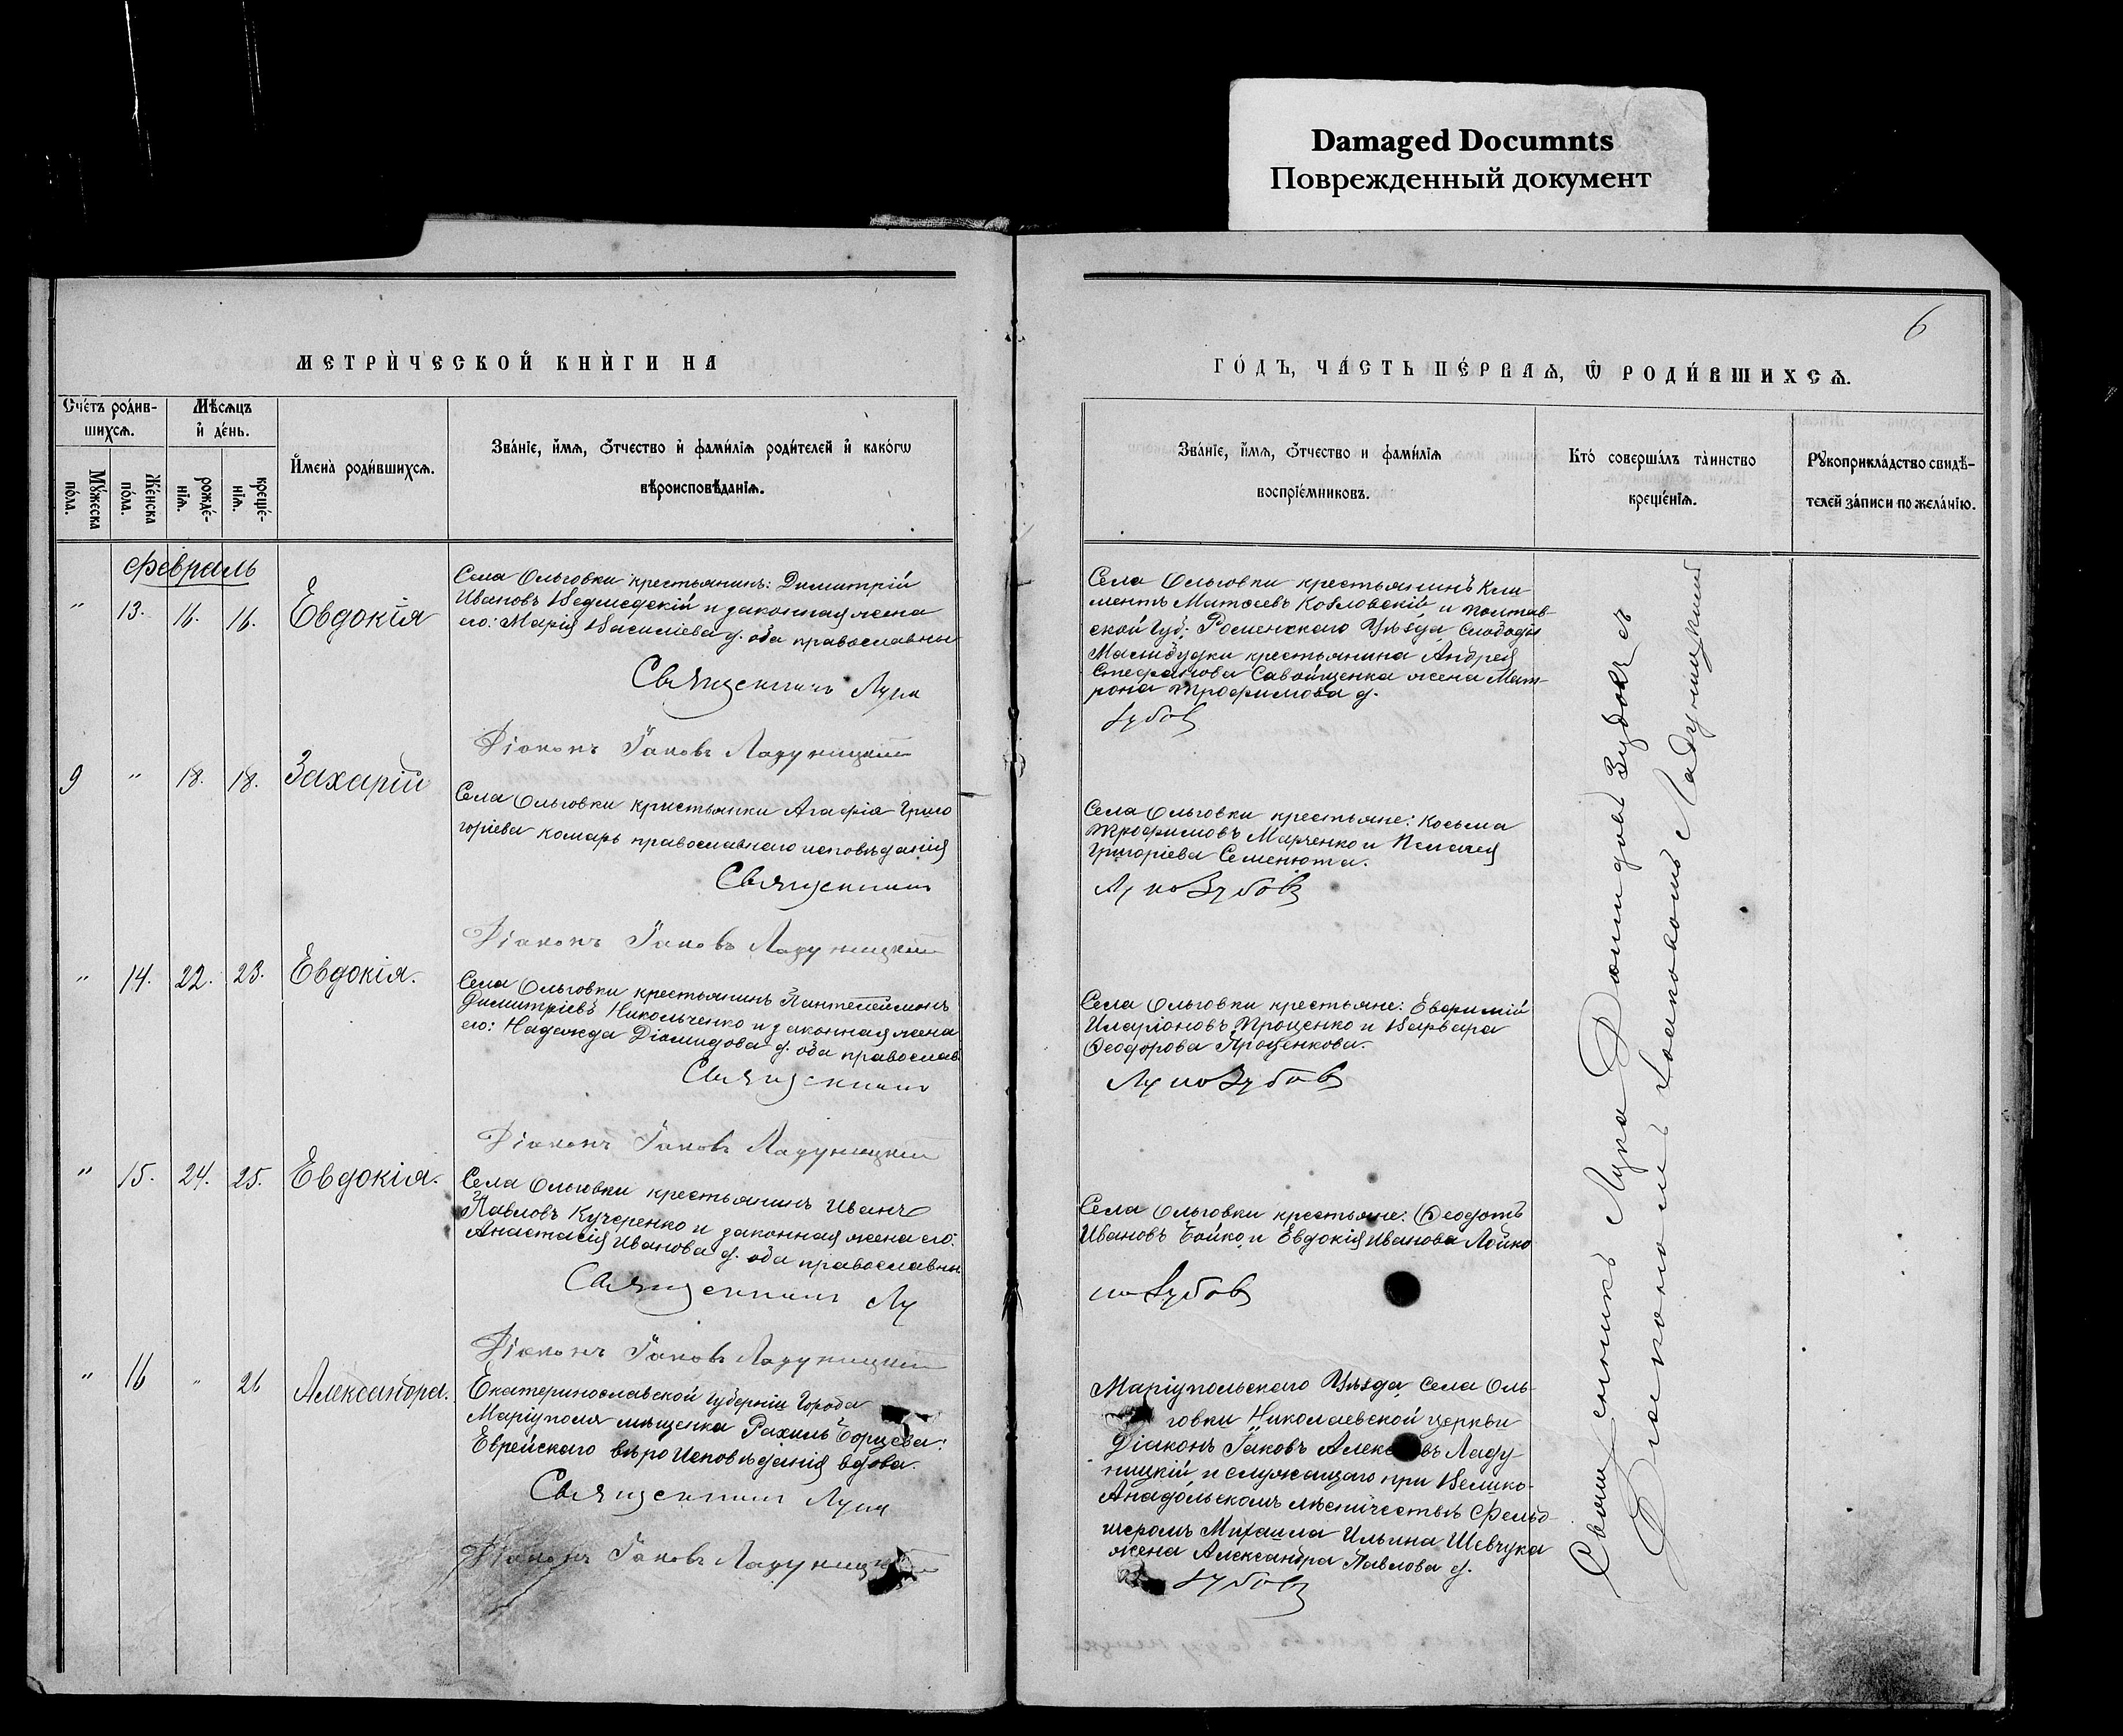 Damaged Documnts
Поврежденный документ
6
МЕТРИ́ЧЕСКОЙ КНИ́ГИ НА
ГО́ДЪ, ЧА́СТЬ ПЕ́РВАѦ, Ѡ РОДИ́ВШИХСѦ.
Сче́тъ роди́в-
шихсѧ.
Мꙋ́жеска
по́ла.
Же́нска
по́ла.
Мѣ́сѧцъ
и҆ де́нь.
рожде́-
нїѧ.
креще́-
нїѧ.
И҆мена̀ роди́вшихсѧ.
Зва́нїе, и҆́мѧ, ѻ҆́тчество и҆ фами́лїѧ роди́телей и҆ како́гѡ
вѣроисповѣ́данїѧ.
Зва́нїе, и҆́мѧ, ѻ҆́тчество и фами́лїѧ
воспрїе́мниковъ.
Кто̀ соверша́лъ та̀инство
креще́нїѧ.
Рꙋкоприкла́дство свидѣ́-
телей за́писи по жела́нїю.
Февраль
" 13. 16. 16. Евдокія
Села Ольговки крестьянинъ: Димитрій
Ивановъ Ведмедскій и законная жена
его: Марія Василіева д. оба православны
Священникъ Лука
Діаконъ Іаковъ Ладуницкій
Села Ольговки крестьянинъ Кли
ментъ Матѳеевъ Козловскій и Полтав-
ской Губ: Роменскаго Уѣзда Слободы
крестьянина Андрея
Стефанова Савойщенка жена Мат-
рона Трофимова д.
Зубовъ
9 " 18. 18. Захарій
Села Ольговки кристьянки Агафія Григо
горіева Комарь православнаго исповѣданія
Священникъ
Діаконъ Іаковъ Ладуницкій
Села Ольговки крестьяне: Косьма
Трофимовъ Марченко и Пелагея
Григоріева Семенюта.
Лука Зубовъ
" 14. 22. 23. Евдокія.
Села Ольговки крестьянинъ Пантелеймонъ
Димитріевъ Никольченко и законная жена
его: Надежда Діомидова д. оба православ.
Священникъ
Діаконъ Іаковъ Ладуницкій
Села Ольговки крестьяне: Евфимій
Иларіоновъ Проценко и Варвара
Ѳеодорова Проценкова.
Лука Зубовъ
" 15. 24. 25. Евдокія.
Села Ольговки крестьянинъ Иванъ
Павловъ Кучеренко и законная жена его:
Анастасія Иванова д. оба православны
Священникъ Лу
Діаконъ Іаковъ Ладуницкій
Села Ольговки крестьяне: Ѳеодотъ
Ивановъ Бойко и Евдокія Иванова Лойко
ка Зубовъ
" 16 " 26 Александра.
Екатеринославской губерніи Города
Маріуполя мѣщенка Рахиль Борцева:
Еврейскаго вѣроисповѣданія вдова.
Священникъ Лука
Діаконъ Іаковъ Ладуницкій
Маріупольскаго Уѣзда Села Оль-
говки Николаевской церкви
Діаконъ Іаковъ Алекс въ Ладу-
ницкій и служащаго при Велико-
Анадольскомъ лѣсничествѣ Фельд-
шеромъ Михаила Ильина Шевчука
жена Александра Павлова д.
Зубовъ
Священникъ Лука Діомидовъ Зубовъ съ
Діакономъ Іаковомъ Ладуницкимъ